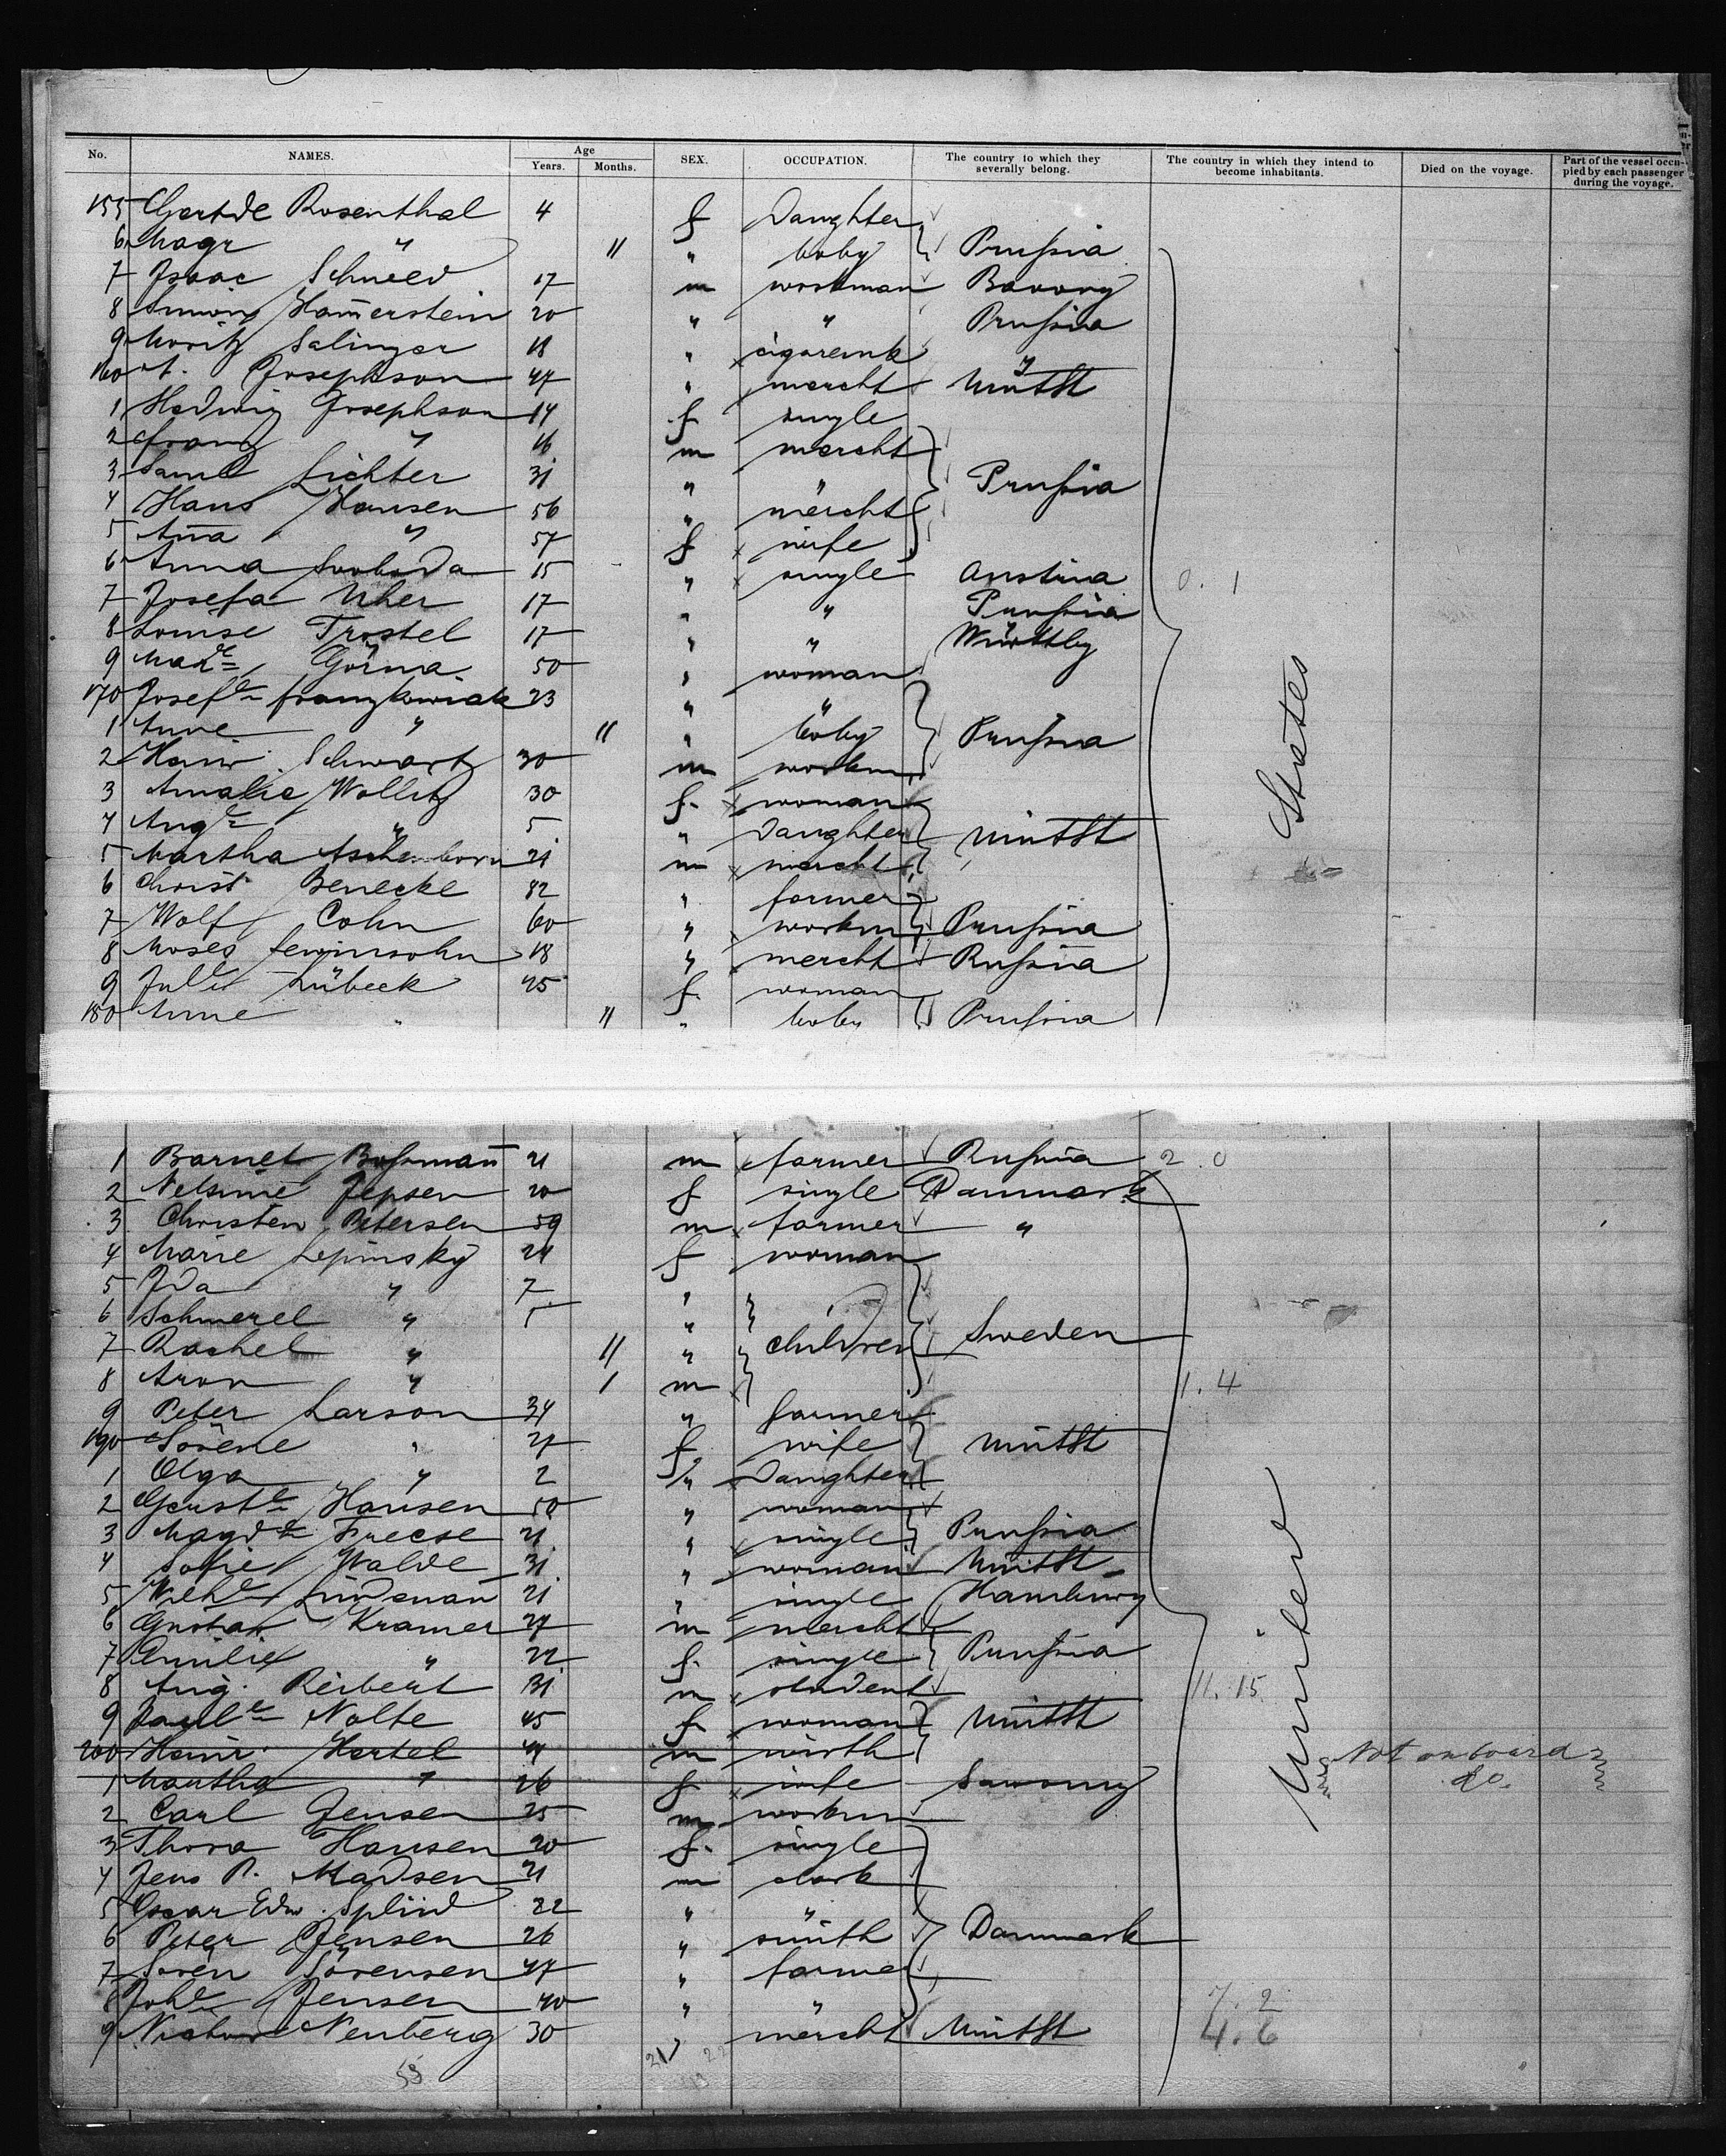 No. NAMES. Age Years. Months. SEX. OCCUPATION. The country to which they severally belong. The country in which they intend to become inhabitants. Died on the voyage. Part of the vessel occupied by each passenger during the voyage.
155 Rosenthal 4 f Daughter
6 " 11 " baby Prussia
7 Isaac 17 m workman
8 Hamerstein 20 " " Prussia
9 Moritz Salinger 18 "
160 Josephson 47 " mercht
1 Hedwig Josephson 14 f single
2 Franz " 16 m mercht
3 Saml Lichter 31 " " Prussia
4 Hans Hansen 56 " mercht
5 Ana " 57 f wife
6 Anna Svoboda 15 " single Austria 0. 1
7 Josefa Uher 17 " " Prussia
8 Louise Trostel 17 " "
9 Görna 50 " woman
170 23 " "
1 Anne " 11 " baby Prussia
2 Heinr. Schwartz 30 m workm
3 Amalie Wollitz 30 f. woman
4 Auge " 5 " Daughter
5 Martha 21 m mercht
6 Christ Benecke 82 " farmer
7 Wolf Cohn 60 " workm Prussia
8 Moses Lewinsohn 18 " mercht Russia
9 Lübeck 45 f. woman
180 Anne " 11 " baby Prussia
States
1 Barnet 21 m farmer Russia 2. 0
2 Jepsen 20 f single Danmark
3 Christen Petersen 59 m farmer "
4 Marie Lepinsky 24 f woman
5 Ida " 7 "
6 Schmerel " 5 "
7 Rachel " 11 " children Sweden
8 Aron " 1 m 1. 4
9 Peter Larson 34 " farmer
190 Sörene " 27 f wife
1 Olga " 2 " Daughter
2 Hansen 50 " woman
3 Magde Freese 21 " single Prussia
4 Sofie Walde 31 " woman
5 Wilhe 21 " single Hamburg
6 Gustav Kramer 27 m mercht
7 Emilie " 22 f. single Prussia
8 Aug. Reibert 31 m student 11. 15
9 Nolte 45 f woman
200 Heinr. Hertel m Not on board
1 Martha " 26 f wife do.
2 Carl Jensen 25 m workm
3 Thora Hansen 20 f. single
4 Jens P. Madsen 21 m clerk
5 Oscar Edw. Spliid 22 " "
6 Peter Jensen 26 " smith Danmark
7 Sören Sörensen 47 " farmer
8 Johs Jensen 40 " " 7. 2
9 Neuberg 30 " mercht 4. 6
United